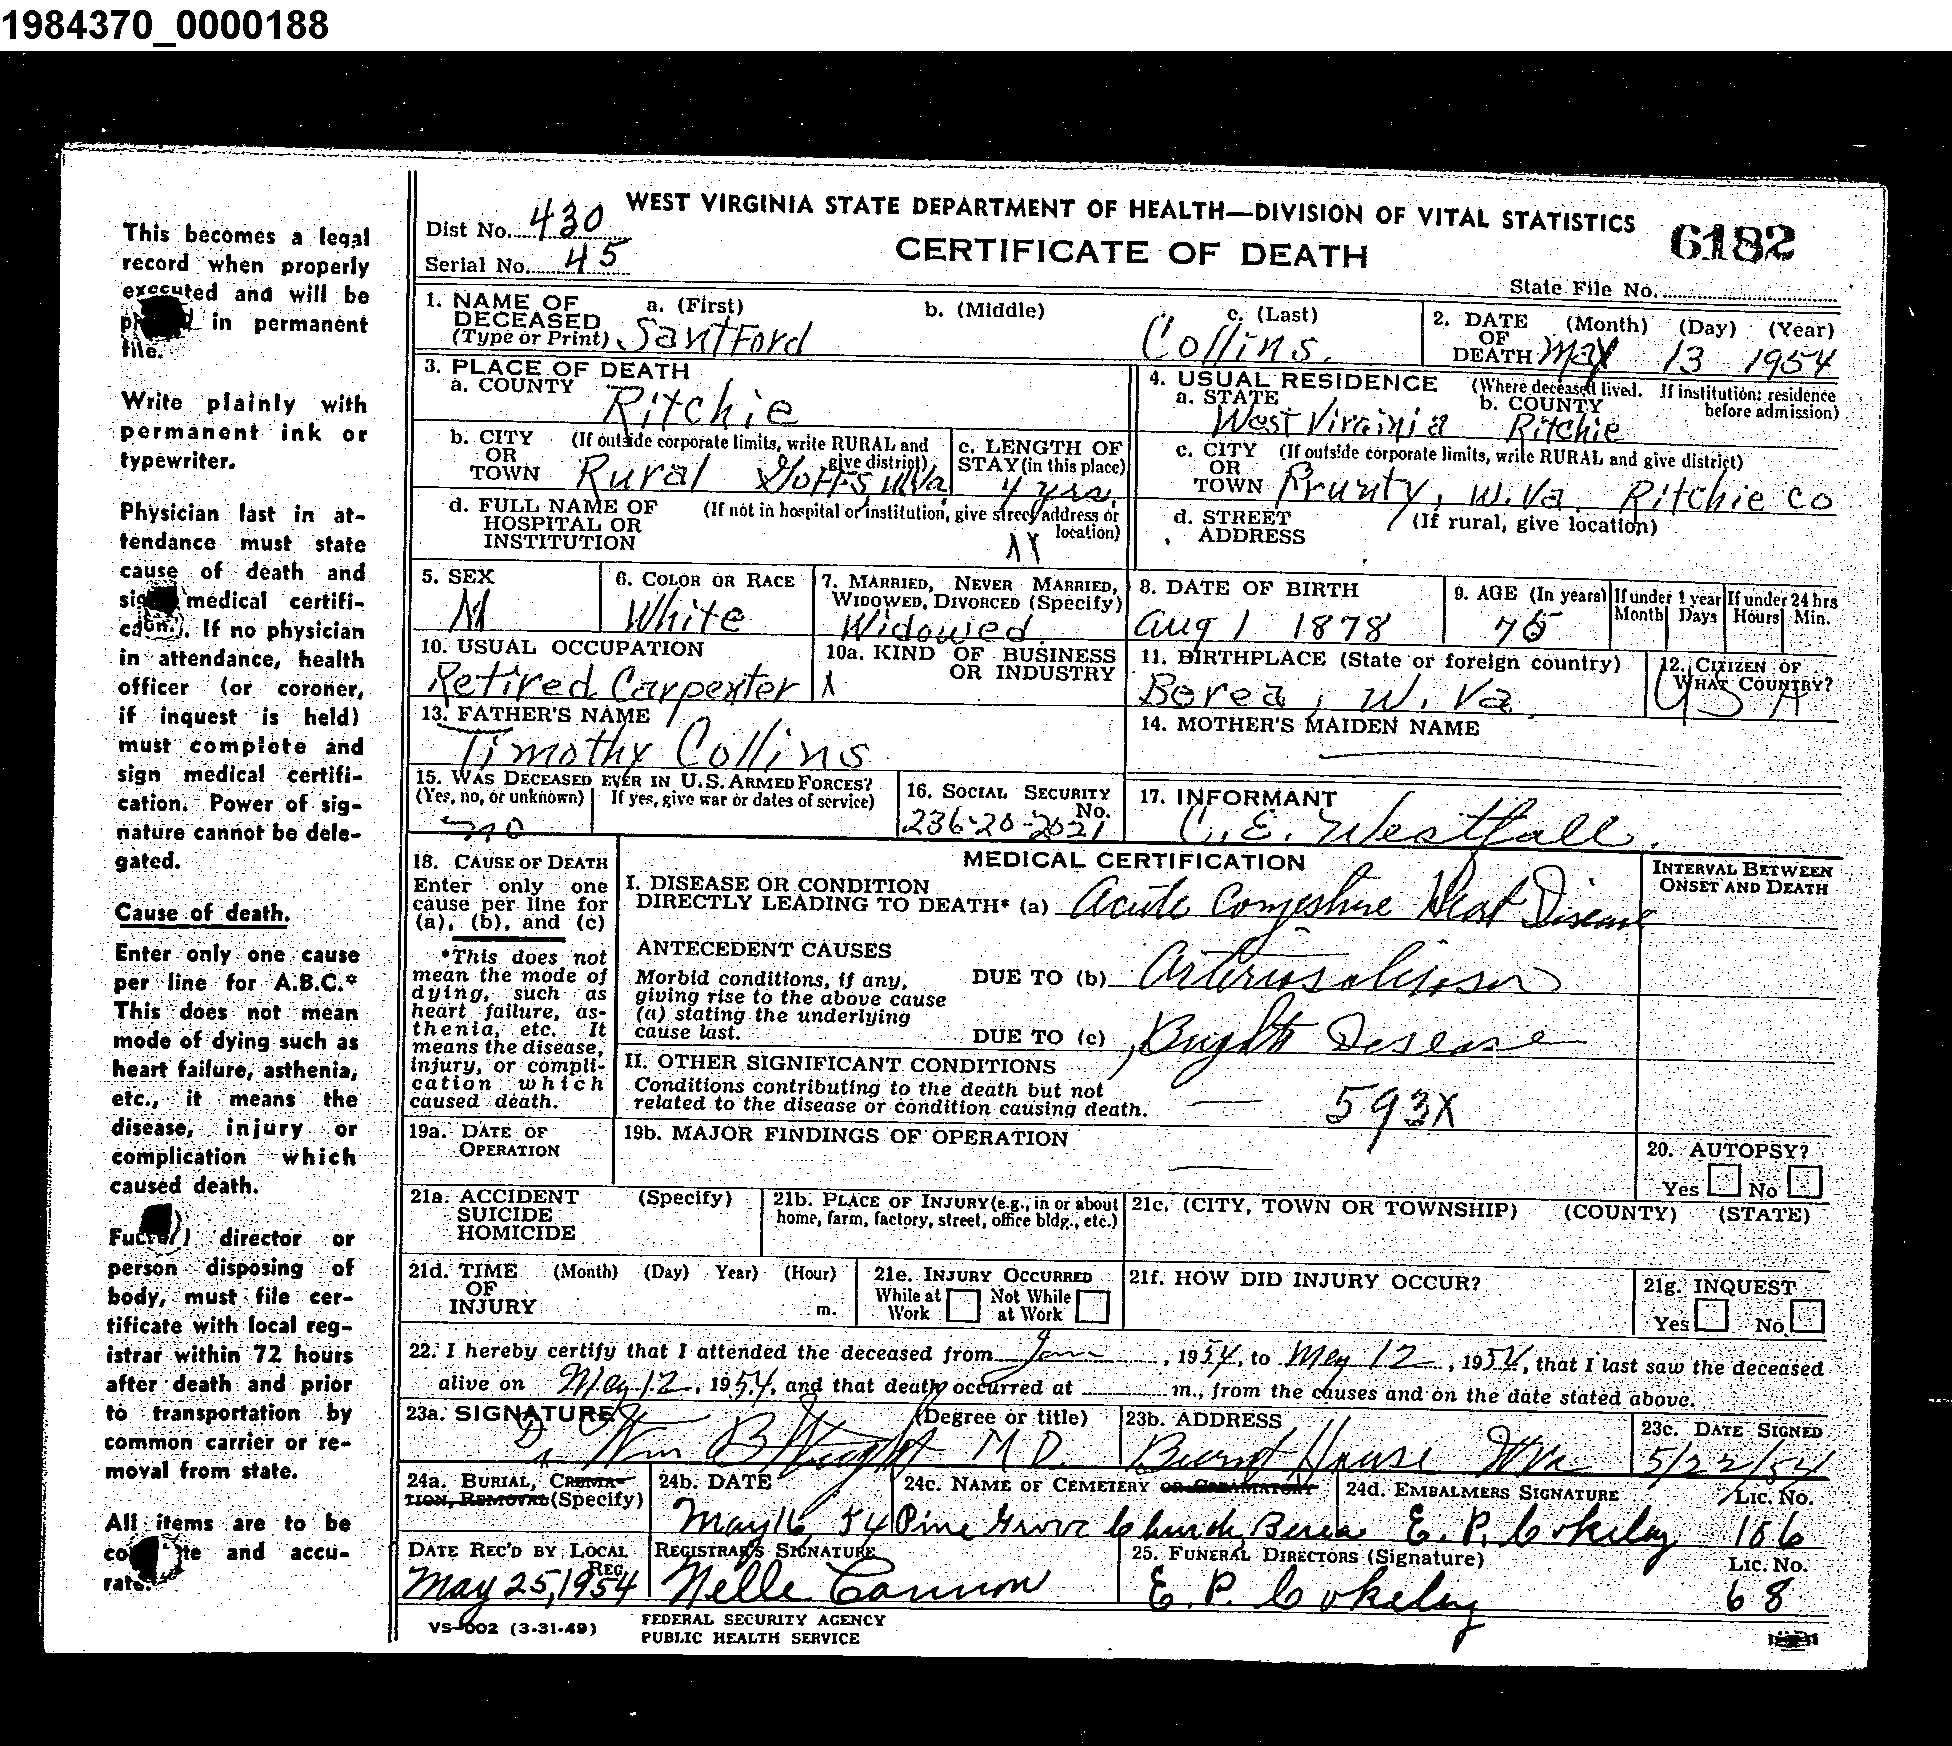 1984370_0000188
This becomes a legal
record when properly
executed and will be
in permanent
file.
Write plainly with
permanent ink or
typewriter.
Physician last in at-
tendance must state
cause of death and
medical certifi-
If no physician
in attendance, health
officer (or coroner,
if inquest is held)
must complete and
sign medical certifi-
cation. Power of sig-
nature cannot be dele-
gated.
Cause of death.
Enter only one cause
per line for A.B.C.*
This does not mean
mode of dying such as
heart failure, asthenia,
etc., it means the
disease, injury or
complication which
caused death.
director or
person disposing of
body, must file cer-
tificate with local reg-
istrar within 72 hours
after death and prior
to transportation by
common carrier or re-
moval from state.
All items are to be
and accu-
rate.
WEST VIRGINIA STATE DEPARTMENT OF HEALTH—DIVISION OF VITAL STATISTICS
Dist No. 430
Serial No. 45
CERTIFICATE OF DEATH
6182
State File No.
1. NAME OF DECEASED (Type or Print) a. (First) b. (Middle) c. (Last)
Santford Collins.
2. DATE OF DEATH (Month) (Day) (Year)
May 13 1954
3. PLACE OF DEATH
a. COUNTY Ritchie
4. USUAL RESIDENCE (Where deceased lived. If institution: residence before admission)
a. STATE West Virginia b. COUNTY Ritchie
b. CITY OR TOWN (If outside corporate limits, write RURAL and give district)
Rural Goffs, W.Va
c. LENGTH OF STAY (in this place)
4 yrs.
c. CITY OR TOWN (If outside corporate limits, write RURAL and give district)
Prunty, W.Va. Ritchie Co
d. FULL NAME OF HOSPITAL OR INSTITUTION (If not in hospital or institution, give street address or location)
d. STREET ADDRESS (If rural, give location)
5. SEX M
6. COLOR OR RACE White
7. MARRIED, NEVER MARRIED, WIDOWED, DIVORCED (Specify) Widowed
8. DATE OF BIRTH Aug 1 1878
9. AGE (In years) 75
If under 1 year Month Days
If under 24 hrs Hours Min.
10. USUAL OCCUPATION Retired Carpenter
10a. KIND OF BUSINESS OR INDUSTRY
11. BIRTHPLACE (State or foreign country) Berea, W. Va.
12. CITIZEN OF WHAT COUNTRY? USA
13. FATHER'S NAME Timothy Collins
14. MOTHER'S MAIDEN NAME
15. WAS DECEASED EVER IN U.S. ARMED FORCES?
(Yes, no, or unknown) If yes, give war or dates of service)
no
16. SOCIAL SECURITY No. 236-20-2021
17. INFORMANT C. E. Westfall.
MEDICAL CERTIFICATION
INTERVAL BETWEEN ONSET AND DEATH
18. CAUSE OF DEATH
Enter only one
cause per line for
(a), (b), and (c)
*This does not
mean the mode of
dying, such as
heart failure, as-
thenia, etc. It
means the disease,
injury, or compli-
cation which
caused death.
I. DISEASE OR CONDITION
DIRECTLY LEADING TO DEATH* (a) Acute Congestive Heart Disease
ANTECEDENT CAUSES
Morbid conditions, if any,
giving rise to the above cause
(a) stating the underlying
cause last.
DUE TO (b)
DUE TO (c) Brights Disease
II. OTHER SIGNIFICANT CONDITIONS
Conditions contributing to the death but not
related to the disease or condition causing death. — 593X
19a. DATE OF OPERATION
19b. MAJOR FINDINGS OF OPERATION —
20. AUTOPSY?
Yes No
21a. ACCIDENT SUICIDE HOMICIDE (Specify)
21b. PLACE OF INJURY (e.g., in or about home, farm, factory, street, office bldg., etc.)
21c. (CITY, TOWN OR TOWNSHIP) (COUNTY) (STATE)
21d. TIME OF INJURY (Month) (Day) Year) (Hour) m.
21e. INJURY OCCURRED
While at Work Not While at Work
21f. HOW DID INJURY OCCUR?
21g. INQUEST
Yes No
22. I hereby certify that I attended the deceased from Jan, 1954, to May 12, 1954, that I last saw the deceased
alive on May 12, 1954, and that death occurred at m., from the causes and on the date stated above.
23a. SIGNATURE (Degree or title)
Dr Wm B Wright M D.
23b. ADDRESS
Burnt House WVa
23c. DATE SIGNED
5/22/54
24a. BURIAL, CREMATION, REMOVAL (Specify)
24b. DATE May 16, 54
24c. NAME OF CEMETERY OR CREMATORY
Pine Grove Church, Berea
24d. EMBALMERS SIGNATURE Lic. No.
E. P. Cokeley 186
DATE REC'D BY LOCAL REG.
May 25, 1954
REGISTRAR'S SIGNATURE
Nelle Cannon
25. FUNERAL DIRECTORS (Signature) Lic. No.
E. P. Cokeley 68
VS-002 (3-31-49)
FEDERAL SECURITY AGENCY
PUBLIC HEALTH SERVICE